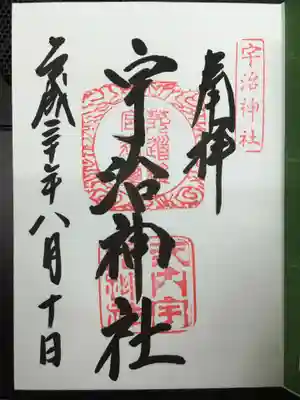 宇治神社
奉拝
宇治神社
平成三十年八月十日